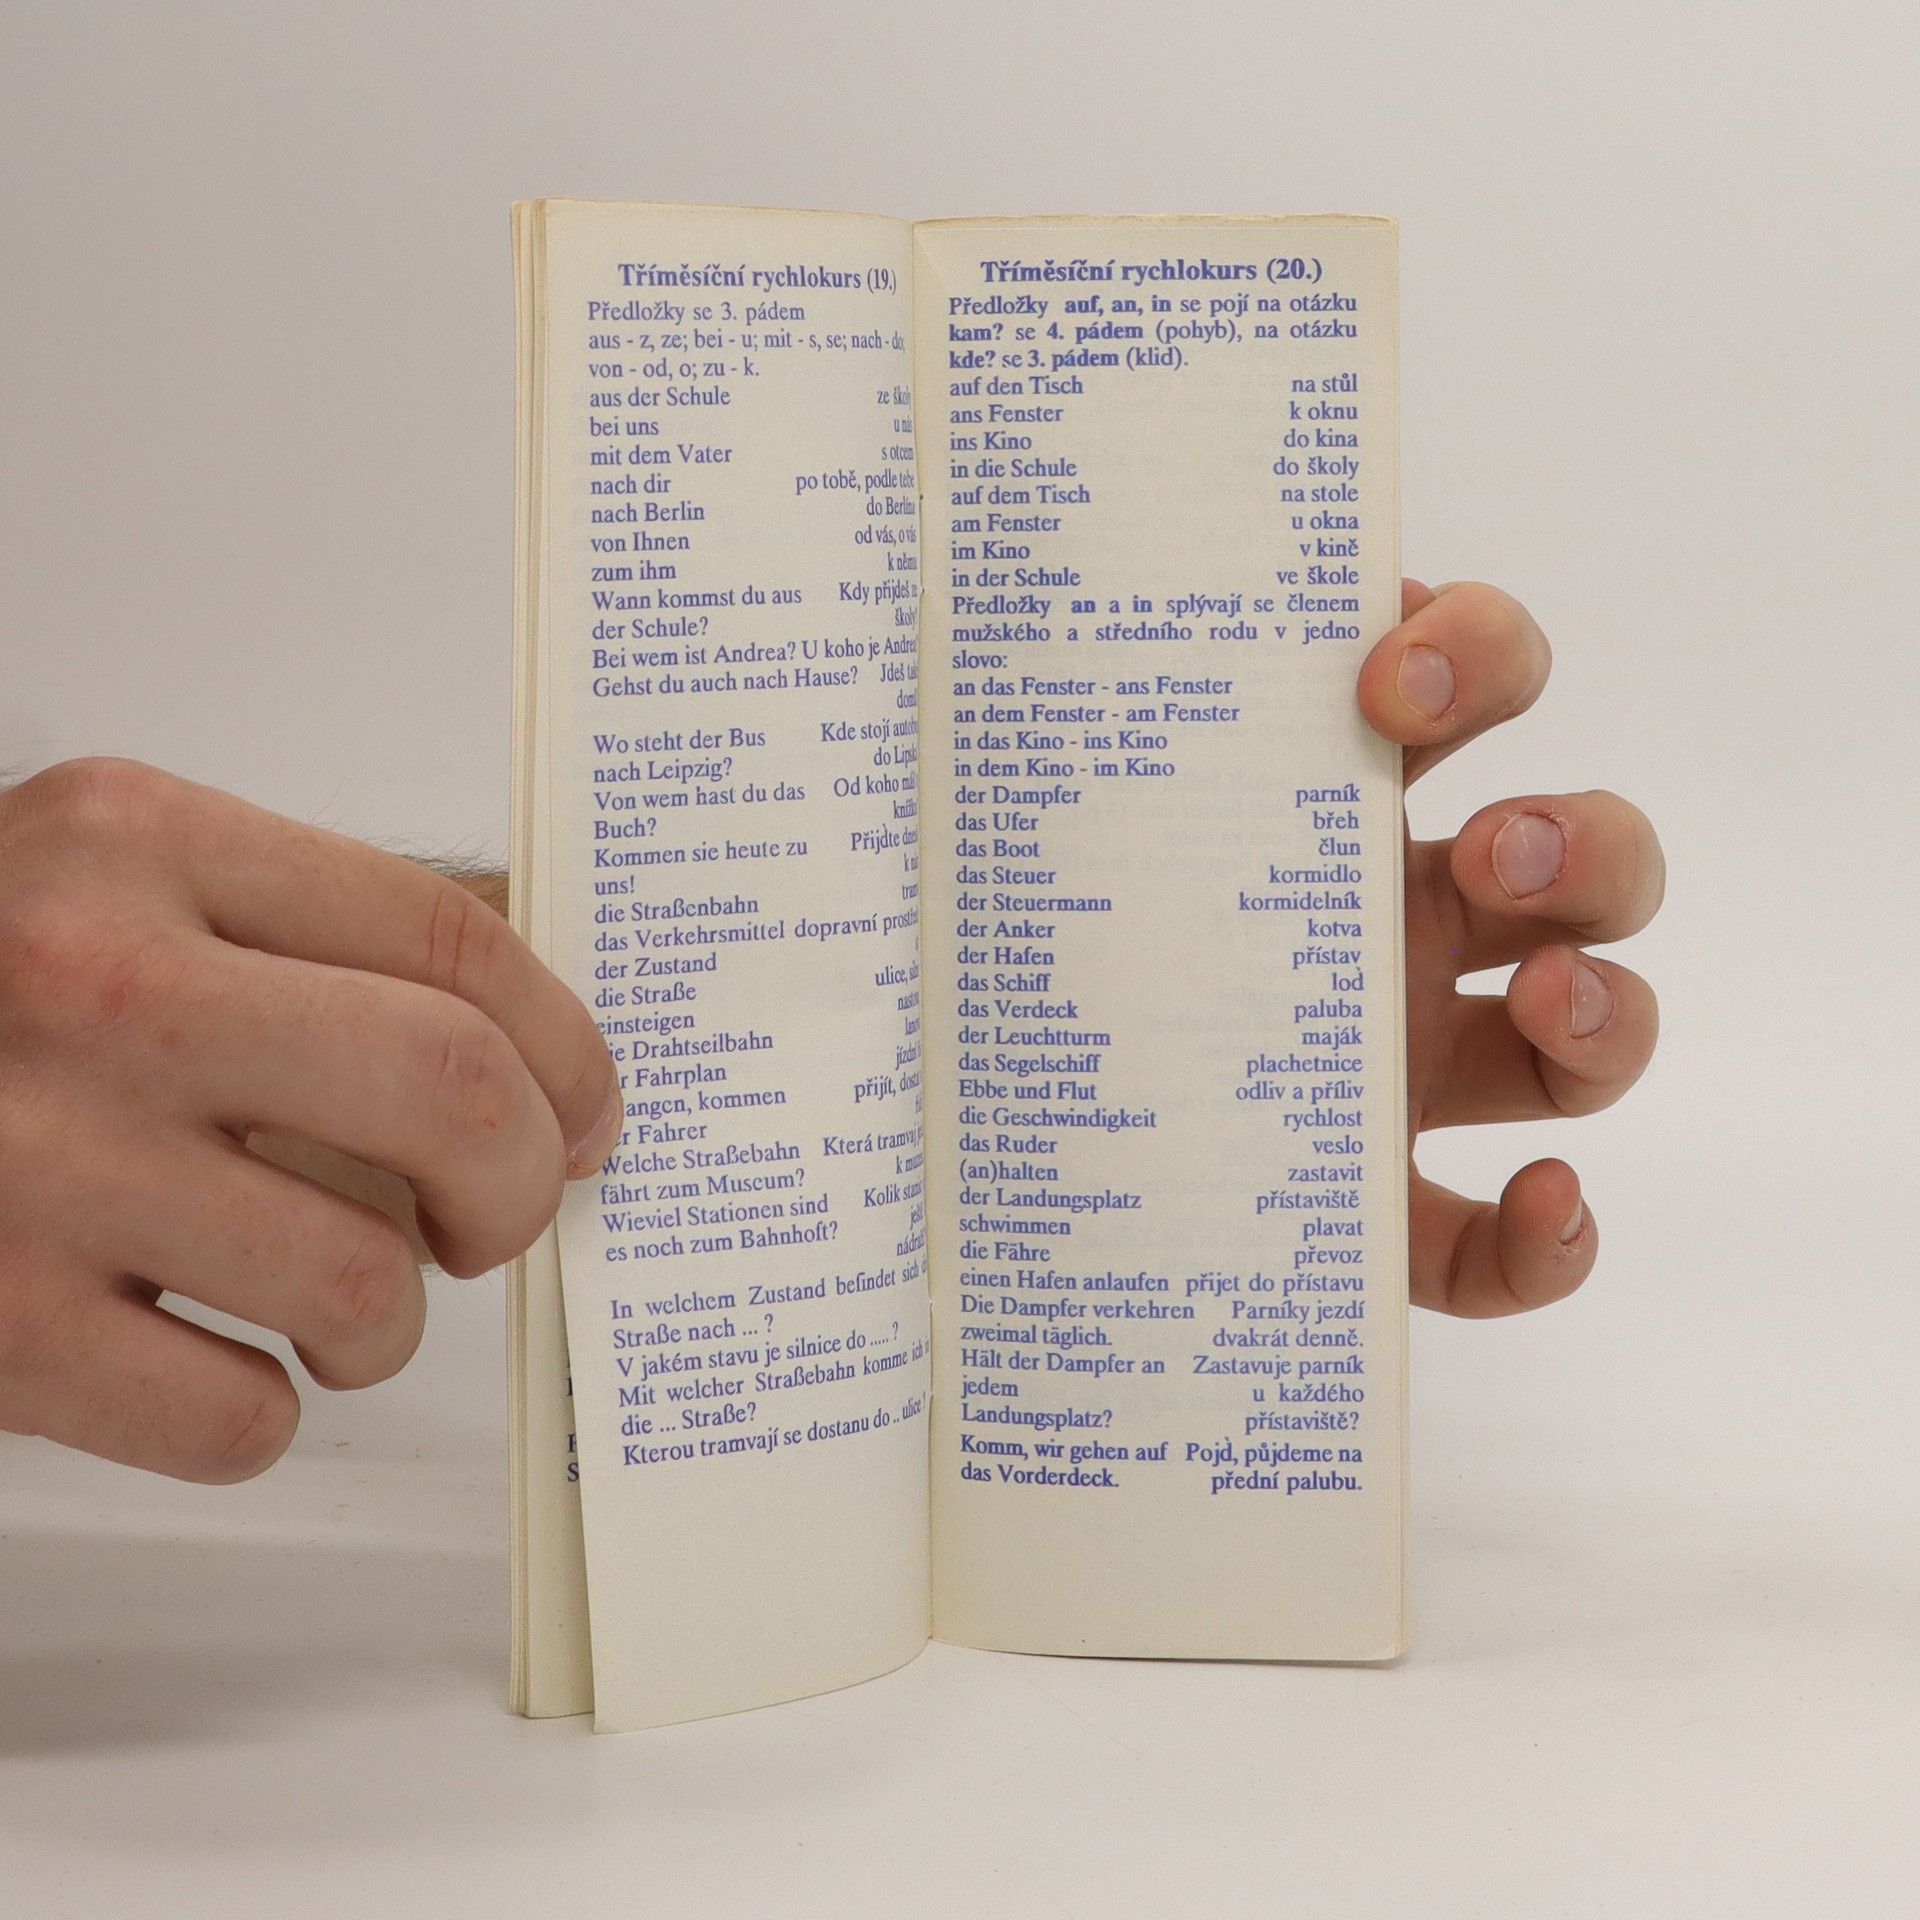 Tříměsíční rychlokurs (19.)
Předložky se 3. pádem
aus - z, ze; bei - u; mit - s, se; nach - do;
von - od, o; zu - k.
aus der Schule ze školy
bei uns u nás
mit dem Vater s otcem
nach dir po tobě, podle tebe
nach Berlin do Berlína
von Ihnen od vás, o vás
zum ihm k němu
Wann kommst du aus Kdy přijdeš ze
der Schule? školy?
Bei wem ist Andrea? U koho je Andrea?
Gehst du auch nach Hause? Jdeš
Wo steht der Bus Kde stojí
nach Leipzig? do
Von wem hast du das Od koho
Buch?
Kommen sie heute zu Přijďte
uns! k
die Straßenbahn
das Verkehrsmittel dopravní
der Zustand
die Straße ulice,
einsteigen
Drahtseilbahn
Fahrplan jízdní
kommen přijít,
Fahrer
Welche Straßebahn Která
fährt zum Museum? k
Wieviel Stationen sind Kolik
es noch zum Bahnhoft?
In welchem Zustand befindet sich
Straße nach ... ?
V jakém stavu je silnice do ..... ?
Mit welcher Straßebahn komme ich in
die ... Straße?
Kterou tramvají se dostanu do .. ulice?
Tříměsíční rychlokurs (20.)
Předložky auf, an, in se pojí na otázku
kam? se 4. pádem (pohyb), na otázku
kde? se 3. pádem (klid).
auf den Tisch na stůl
ans Fenster k oknu
ins Kino do kina
in die Schule do školy
auf dem Tisch na stole
am Fenster u okna
im Kino v kině
in der Schule ve škole
Předložky an a in splývají se členem
mužského a středního rodu v jedno
slovo:
an das Fenster - ans Fenster
an dem Fenster - am Fenster
in das Kino - ins Kino
in dem Kino - im Kino
der Dampfer parník
das Ufer břeh
das Boot člun
das Steuer kormidlo
der Steuermann kormidelník
der Anker kotva
der Hafen přístav
das Schiff loď
das Verdeck paluba
der Leuchtturm maják
das Segelschiff plachetnice
Ebbe und Flut odliv a příliv
die Geschwindigkeit rychlost
das Ruder veslo
(an)halten zastavit
der Landungsplatz přístaviště
schwimmen plavat
die Fähre převoz
einen Hafen anlaufen přijet do přístavu
Die Dampfer verkehren Parníky jezdí
zweimal täglich. dvakrát denně.
Hält der Dampfer an Zastavuje parník
jedem u každého
Landungsplatz? přístaviště?
Komm, wir gehen auf Pojď, půjdeme na
das Vorderdeck. přední palubu.